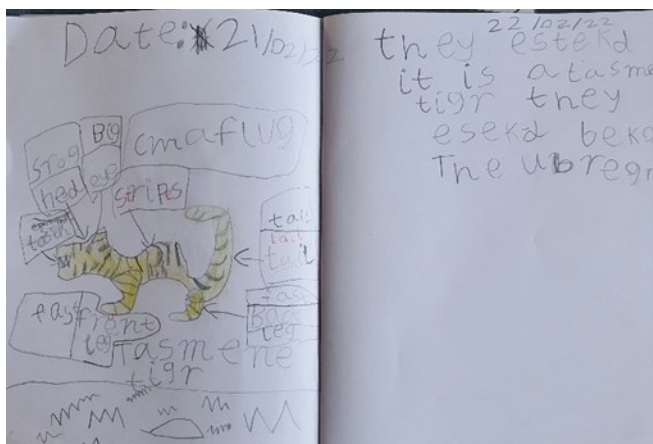 Date: 21/02/22
Big
cmaflug
Strog
hed
eye
stripes
tail
tail
tail
fast
Back
leg
fast
frent
leg
Tasmene
tigr
22/02/22
they estekd
it is a tasme
tigr they
esekd beka
The